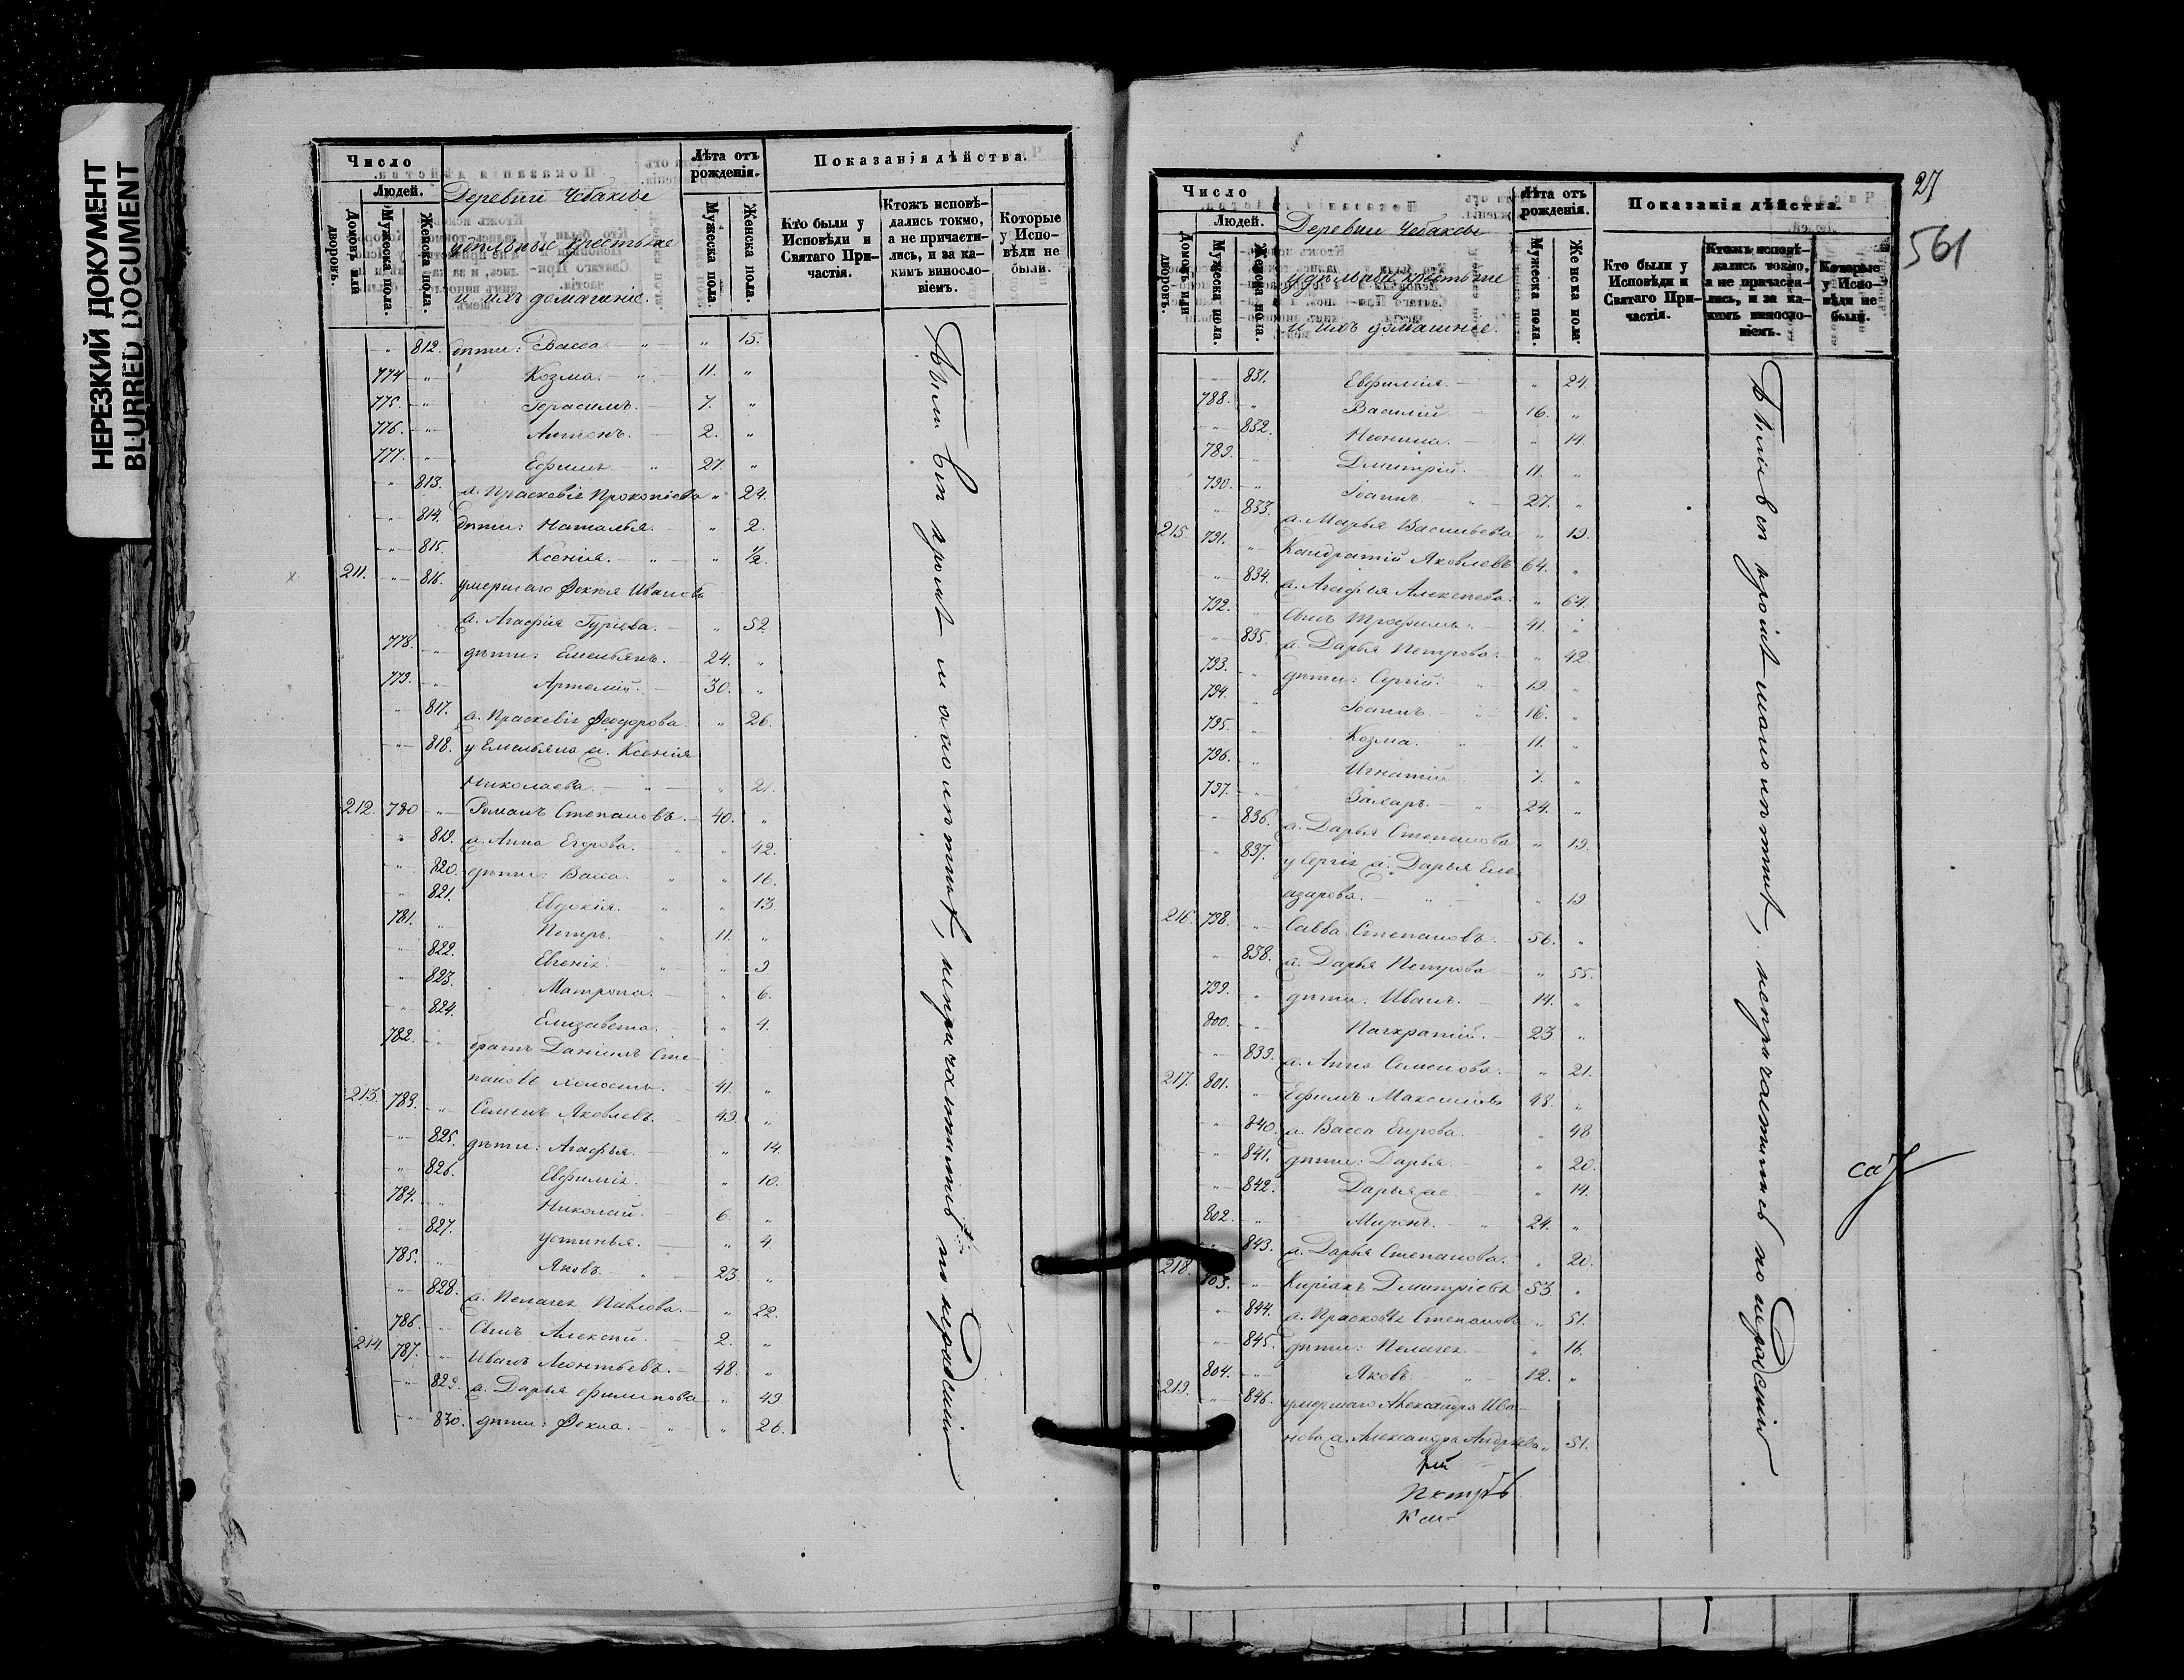 НЕРЕЗКИЙ ДОКУМЕНТ
BLURRED DOCUMENT
Число
Людей.
Домовъ или дворовъ.
Мужеска пола.
Женска пола.
Деревни Чебаксы
удѣльные крестьяне
и ихъ домашніе.
Лѣта отъ рожденія.
Мужеска пола.
Женска пола.
Показанія дѣйства.
Кто были у Исповѣди и Святаго Причастія.
Ктожъ исповѣдались токмо, а не причастились, и за какимъ винословіемъ.
Которые у Исповѣди не были.
" 812. дѣти: Васса " " 15.
774 " Козма. " 11. "
775. " Герасимъ. 7. "
776. " Антонъ. 2. "
777. " Ефимъ " 27. "
" 813. ж. Праскевія Прокопіева " 24.
" 814. дѣти: Наталья. " 2.
" 815. Ксенія. " " ½.
211. " 816. умершаго Фокія Иванова
ж. Агафія Гуріева. " 52
778. " дѣти: Емельянъ. 24. "
779. " Артемій. 30. "
" 817. ж. Праскевія Ѳеодорова. " 26.
" 818. у Емельяна ж. Ксенія
Николаева. " " 21.
212. 780 " Романъ Степановъ. 40. "
" 819. ж. Анна Егорова. " " 42.
" 820. дѣти: Васса. " " 16.
" 821. Евдокія. " " 13
781. " Петръ. " 11. "
" 822. Евгенія. " " 9
" 823. Матрона. " 6.
" 824. Елизавета. " 4.
782. " братъ Даніилъ Сте-
пановъ холостъ. 41. "
213. 783. " Семенъ Яковлевъ. 49. "
" 825. дѣти: Агафья. " 14.
" 826. Евфимія. " 10.
784. " Николай. 6. "
" 827. Устинья. " 4.
785. " Яковъ. " 23. "
" 828. ж. Пелагея Павлова. " 22.
786. " Сынъ Алексѣй. 2. "
214. 787. " Иванъ Леонтьевъ. 48. "
" 829. ж. Дарья Филипова " 49
" 830. дѣти: Фекла. " " 26.
Были всѣ кромѣ малолѣтнихъ, непричастились по нерадѣнію
27
561
Число
Людей.
Домовъ или дворовъ.
Мужеска пола.
Женска пола.
Деревни Чебаксы
удѣльные крестьяне
и ихъ домашніе.
Лѣта отъ рожденія.
Мужеска пола.
Женска пола.
Показанія дѣйства.
Кто были у Исповѣди и Святаго Причастія.
Ктожъ исповѣдались токмо, а не причастились, и за какимъ винословіемъ.
Которые у Исповѣди не были.
" 831. Евфимія. " 24.
788. " Василій. 16. "
" 832. Неонила. " 14.
789. " Димитрій. 11. "
790. " Іоаннъ. " 27. "
" 833. ж. Марья Васильева " 19.
215. 791. " Кандратій Яковлевъ 64. "
" 834. ж. Агафья Алексѣева. " 64.
792. " Сынъ Трофимъ. 41. "
" 835. ж. Дарья Петрова. " 42.
793. " дѣти: Сергій. " 19. "
794. " Іоаннъ. " 16. "
795. " Козма. " 11. "
796. " Игнатій 7. "
797. " Захаръ. " 24. "
" 836. ж. Дарья Степанова " 19.
" 837. у Сергія ж. Дарья Еле
азарова. " " 19
216. 798. " Савва Степановъ. 56. "
" 838. ж. Дарья Петрова " 55.
799. " дѣти: Иванъ. 14. "
800. " Панкратій. 23. "
" 839. ж. Анна Семенова. " 21.
217. 801. " Ефимъ Максимовъ 48. "
" 840. ж. Васса Егорова. " 48
" 841. дѣти: Дарья. " 20.
" 842. Дарья же " 14.
802. " Миронъ. " 24. "
" 843. ж. Дарья Степанова. " 20.
218. 803. " Киріакъ Димитріевъ 53. "
" 844. ж. Прасковья Степанова " 51.
" 845. дѣти: Пелагея " 16.
804. " Яковъ. " 12. "
219. " 846. умершаго Александра Ива-
нова ж. Александра Андреева " 51.
Были всѣ кромѣ малолѣтнихъ, непричастились по нерадѣнію